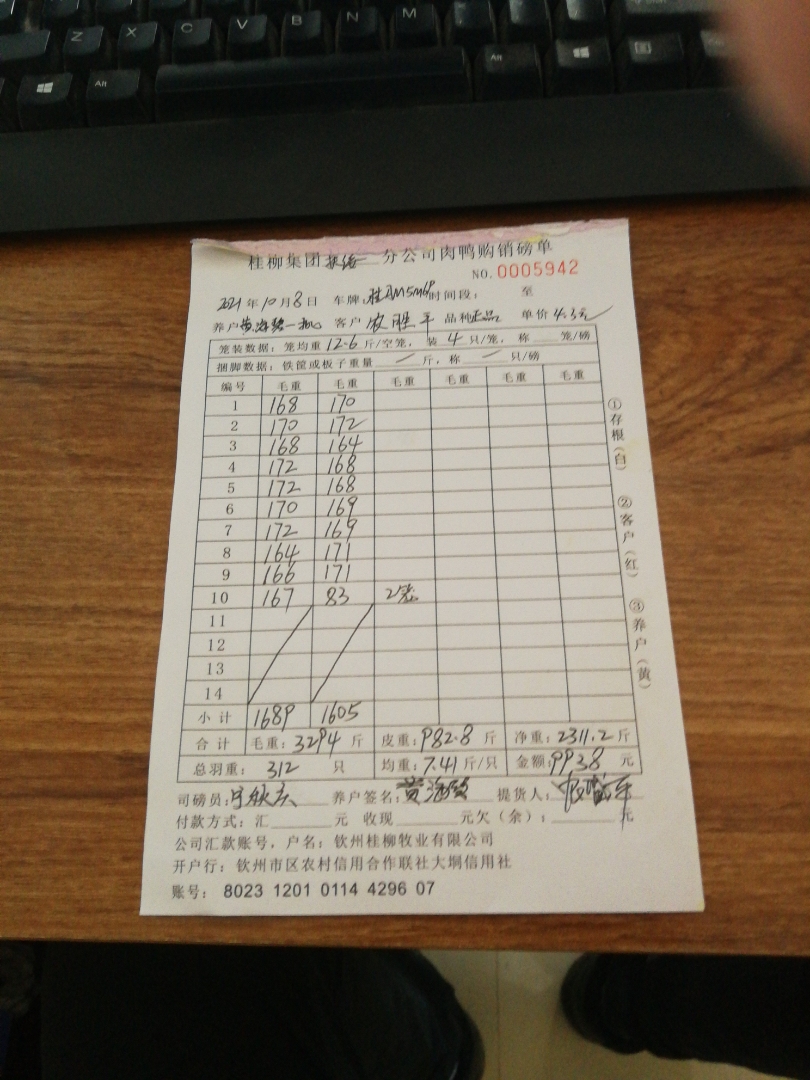 Z X C V B N M
Alt Alt
桂柳集团 分公司肉鸭购销磅单
NO. 0005942
2021年10月8日 车牌:桂 时间段: 至
养户 客户 农胜平 品种 正品 单价 4.3元
笼装数据:笼均重12.6斤/空笼,装4只/笼,称 笼/磅
捆脚数据:铁筐或板子重量 / 斤,称 / 只/磅
编号 毛重 毛重 毛重 毛重 毛重 毛重
1 168 170
2 170 172
3 168 164
4 172 168
5 172 168
6 170 169
7 172 169
8 164 171
9 166 171
10 167 83 2笼
11
12
13
14
小计 1689 1605
合计 毛重:3294斤 皮重:982.8斤 净重:2311.2斤
总羽重:312只 均重:7.41斤/只 金额:9938元
司磅员: 养户签名: 提货人:
付款方式:汇 元 收现 元欠(余): 元
公司汇款账号,户名:钦州桂柳牧业有限公司
开户行:钦州市区农村信用合作联社大垌信用社
账号:8023 1201 0114 4296 07
①存根(白)
②客户(红)
③养户(黄)